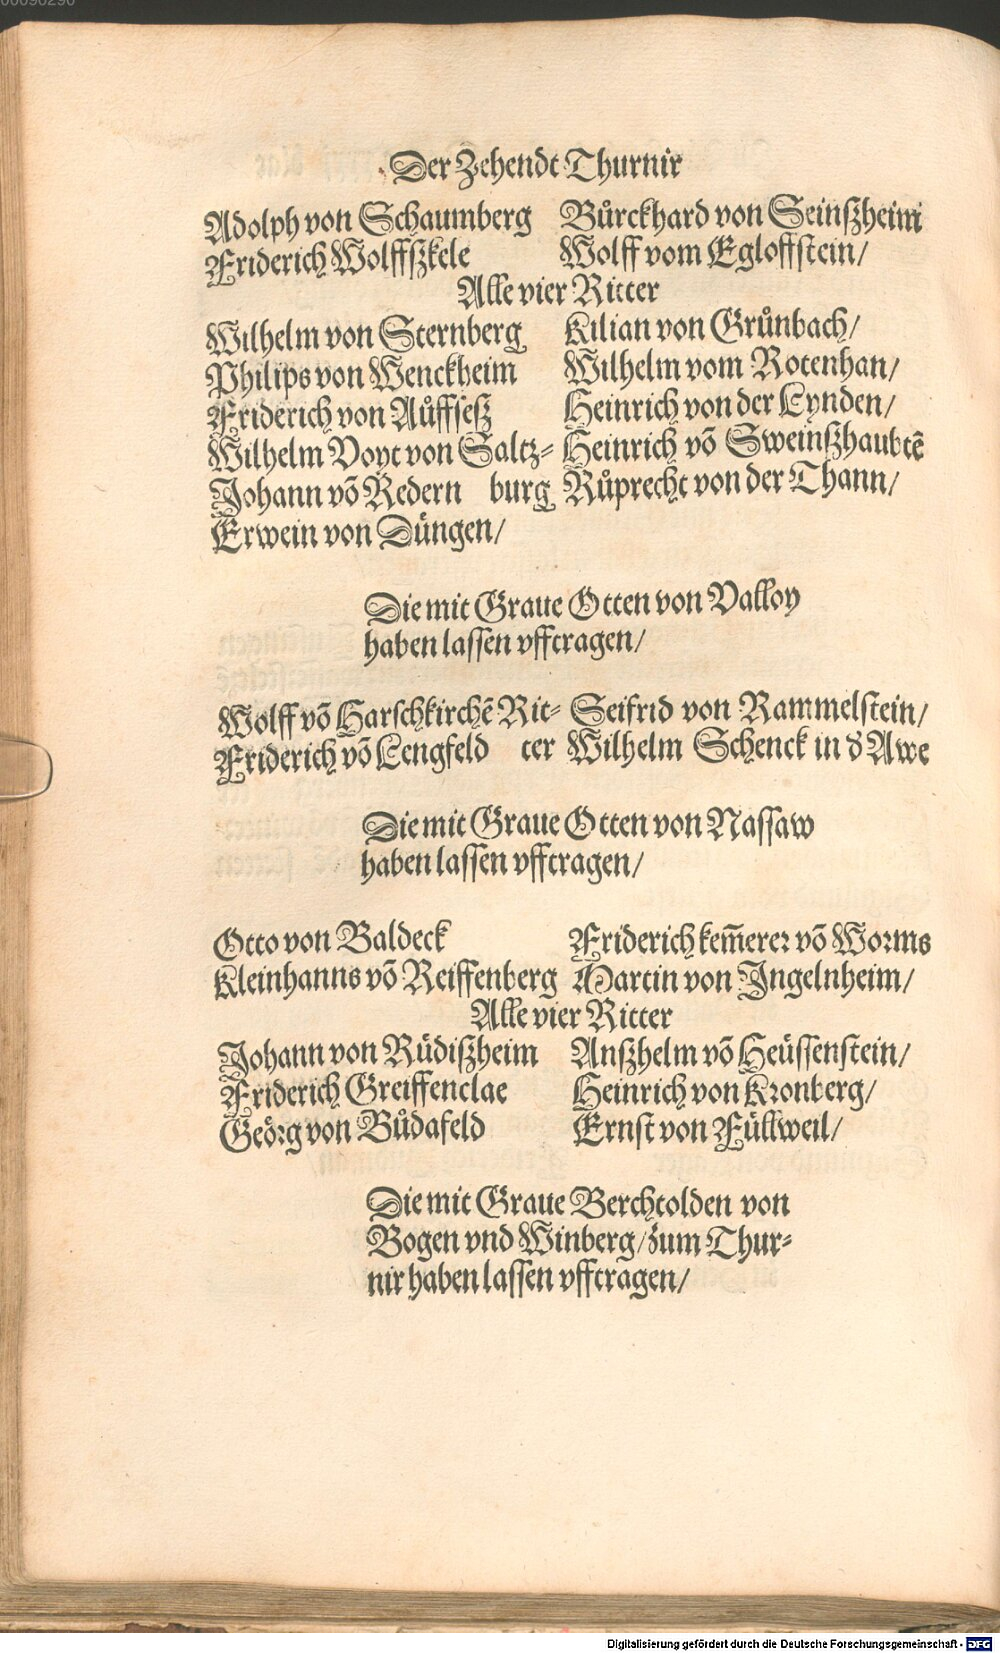 00090290
Der Zehendt Thurnir
Adolph von Schaumberg Bůrckhard von Seinßheim
Friderich Wolffßkele Wolff vom Egloffstein/
Alle vier Ritter
Wilhelm von Sternberg Kilian von Grůnbach/
Philips von Wenckheim Wilhelm vom Rotenhan/
Friderich von Aůffseß Heinrich von der Lynden/
Wilhelm Voyt von Saltz= Heinrich võ Sweinßhaubtẽ
Johann võ Redern burg Růprecht von der Thann/
Erwein von Düngen/
Die mit Graue Otten von Valloy
haben lassen vfftragen/
Wolff võ Harschkirchẽ Rit= Seifrid von Rammelstein/
Friderich võ Lengfeld ter Wilhelm Schenck in d Awe
Die mit Graue Otten von Nassaw
haben lassen vfftragen/
Otto von Baldeck Friderich kem̃erer võ Worms
Kleinhanns võ Reiffenberg Martin von Ingelnheim/
Alle vier Ritter
Johann von Rüdißheim Anßhelm võ Heüssenstein/
Friderich Greiffenclae Heinrich von Kronberg/
Geörg von Bůdafeld Ernst von Füllweil/
Die mit Graue Berchtolden von
Bogen vnd Winberg/zum Thur=
nir haben lassen vfftragen/
Digitalisierung gefördert durch die Deutsche Forschungsgemeinschaft - DFG